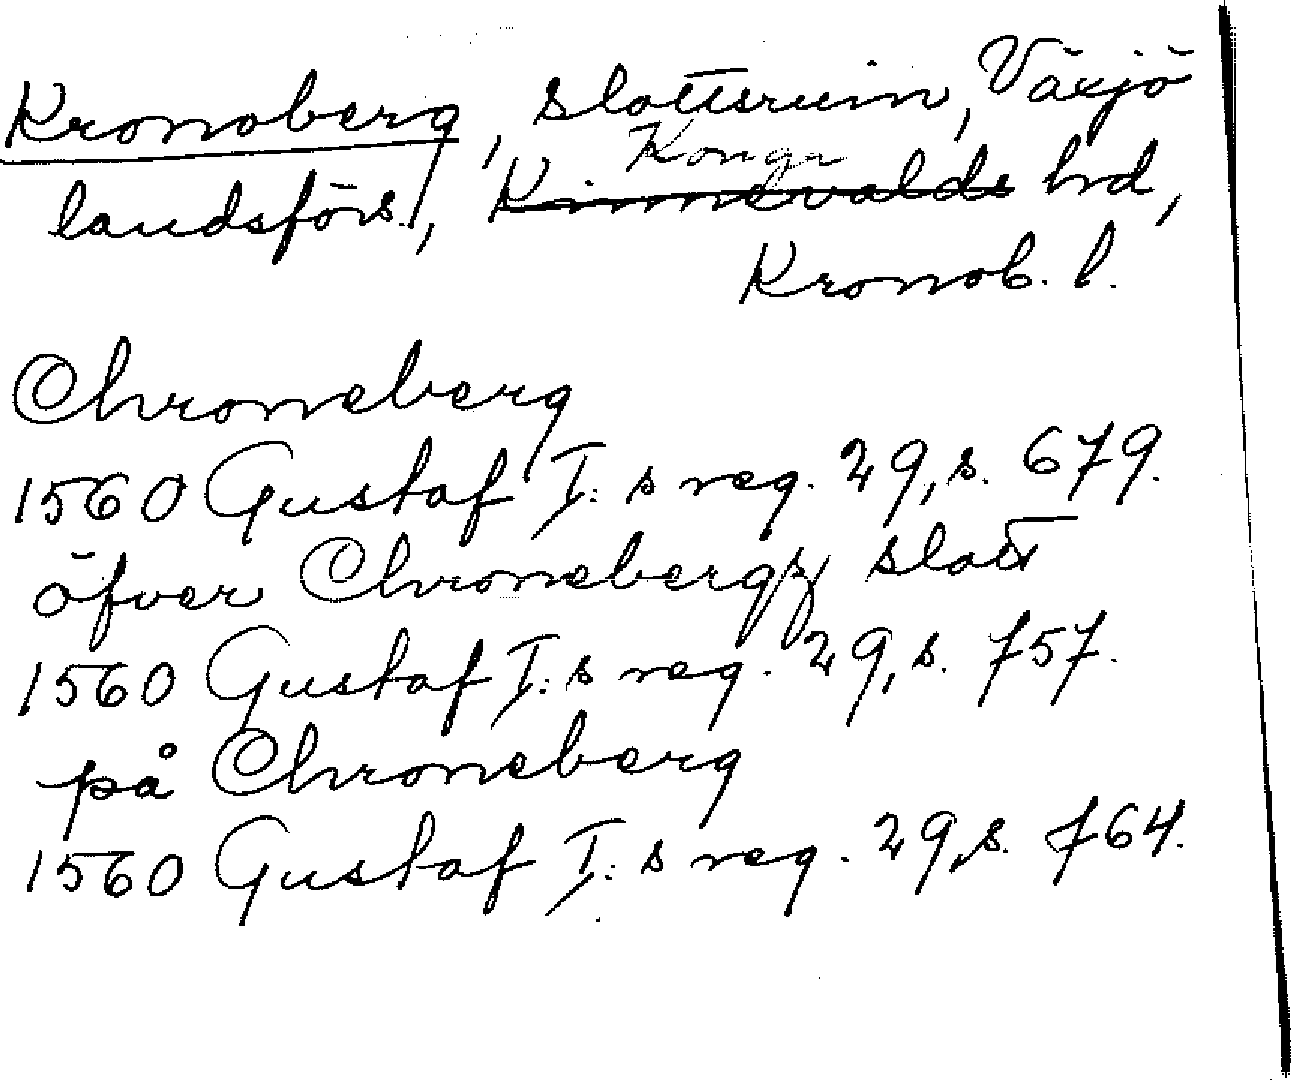 Kronoberg, slottsruin, Växjö
Konga
landsförs., Kinnevalds hrd,
Kronob. l.
Chroneberg
1560 Gustaf I:s reg. 29, s. 679.
öfver Chronebergz slott
1560 Gustaf I:s reg. 29, s. 757.
på Chroneberg
1560 Gustaf I:s reg. 29, s. 764.